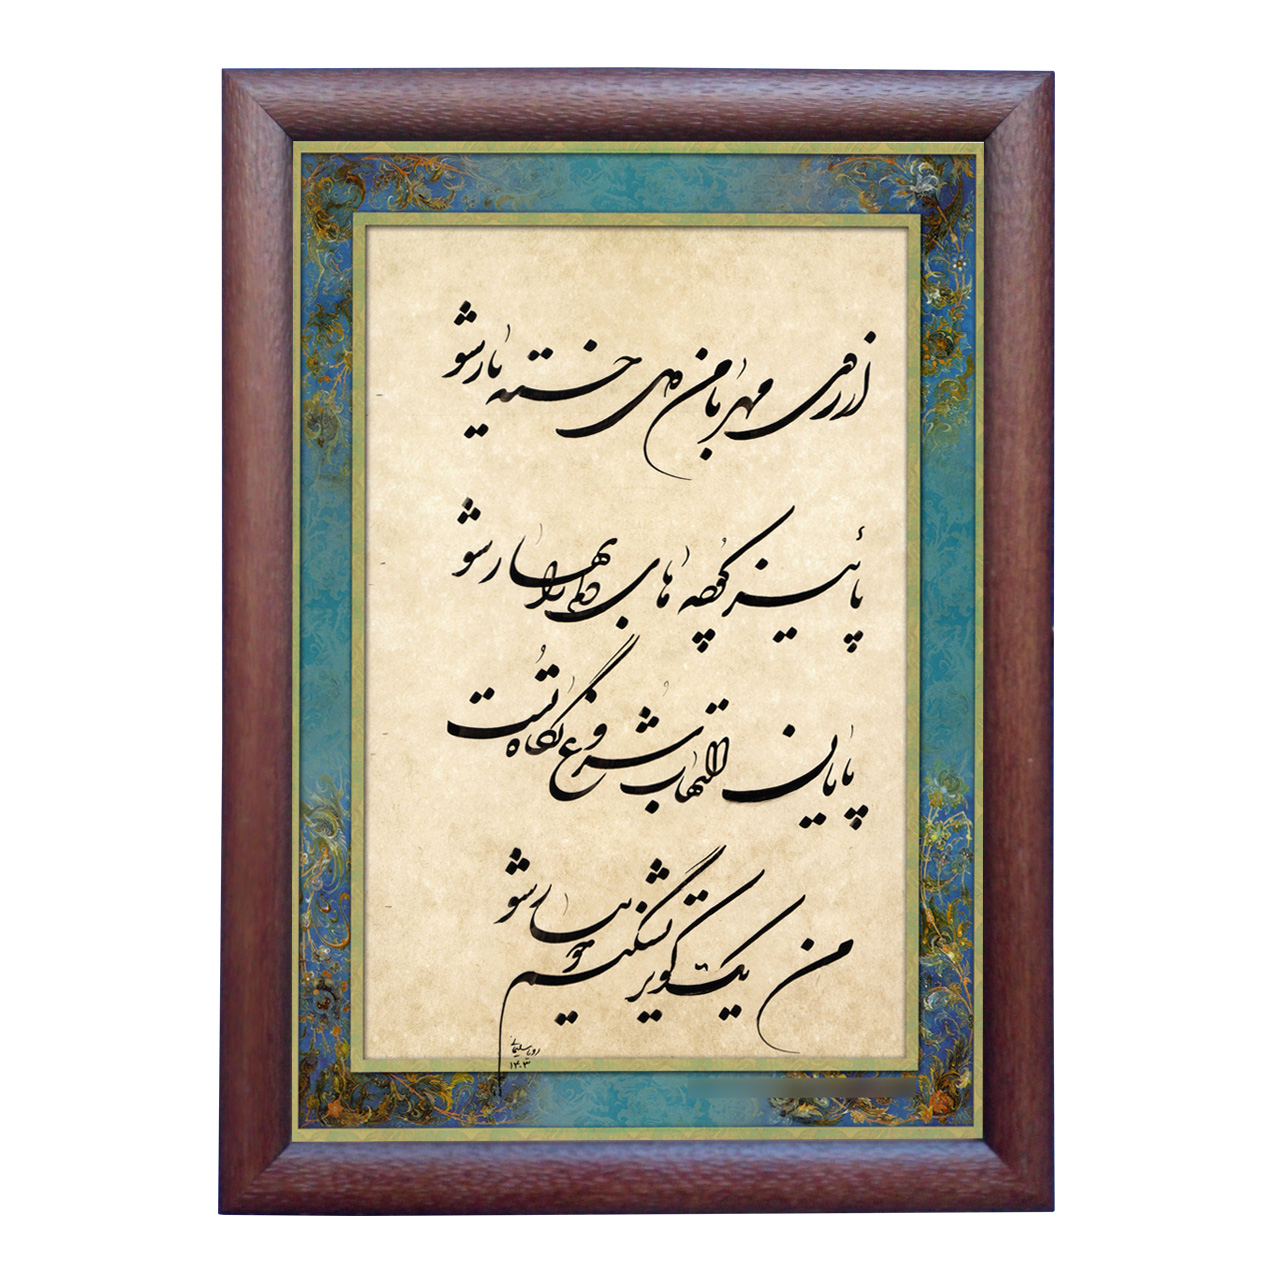 مهر با من دی خسته یار شو
پائیز کوچه های دلم را بهار شو
پایان التهاب شروع نگاه تست
من یک کویر تشنگیم جویبار شو
سلیمانی
۱۴۰۳